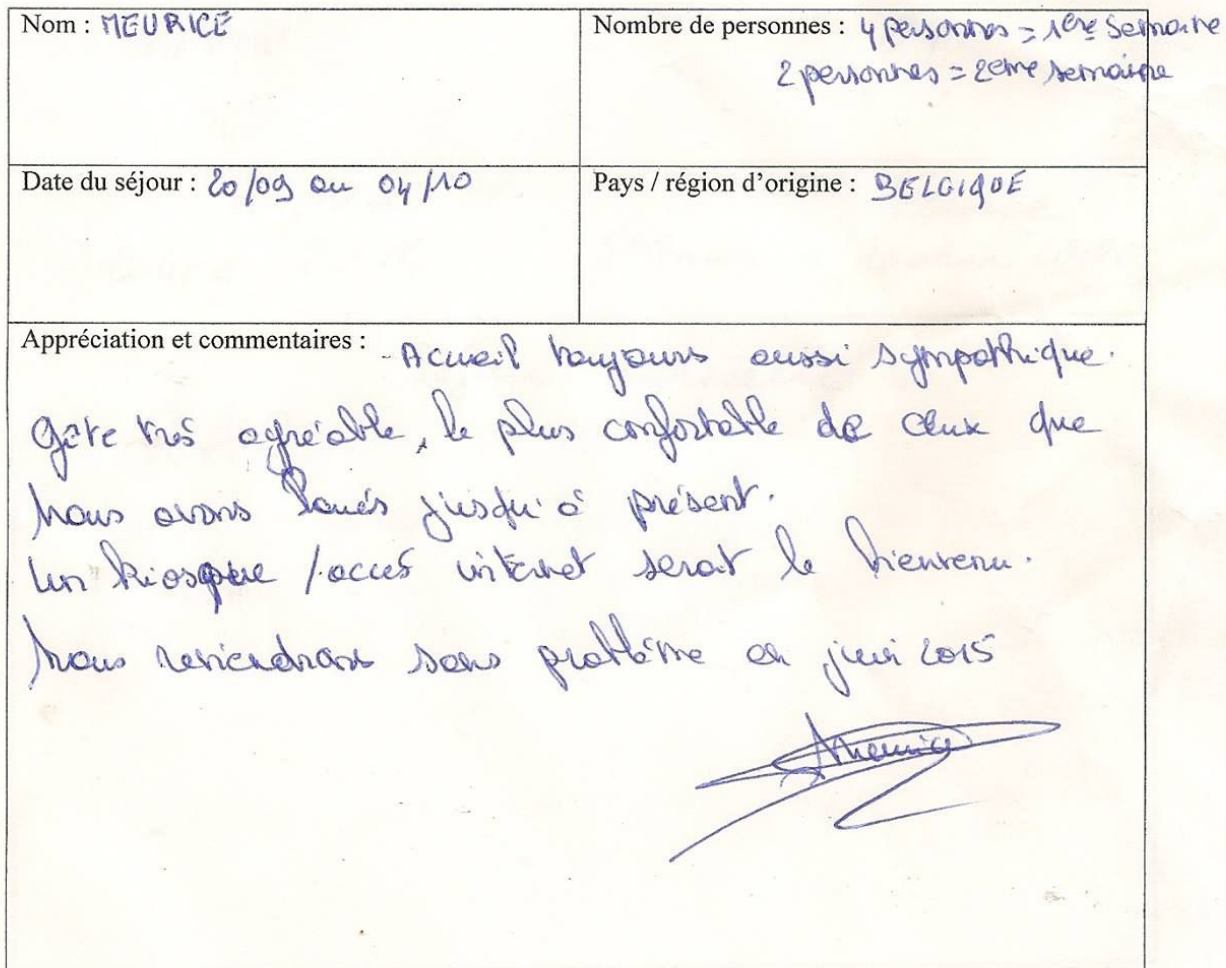 Nom : MEURICE
Nombre de personnes : 4 personnes = 1ère semaine
2 personnes = 2eme semaine
Date du séjour : 20/09 au 04/10
Pays / région d'origine : BELGIQUE
Appréciation et commentaires : - Acueil toujours aussi sympathique.
Gîte très agréable, le plus confortable de ceux que
nous avons loués jusqu'à présent.
Un kiosque / accès internet serait le bienvenu.
Nous reviendrons sans problème en juin 2015
Meurice